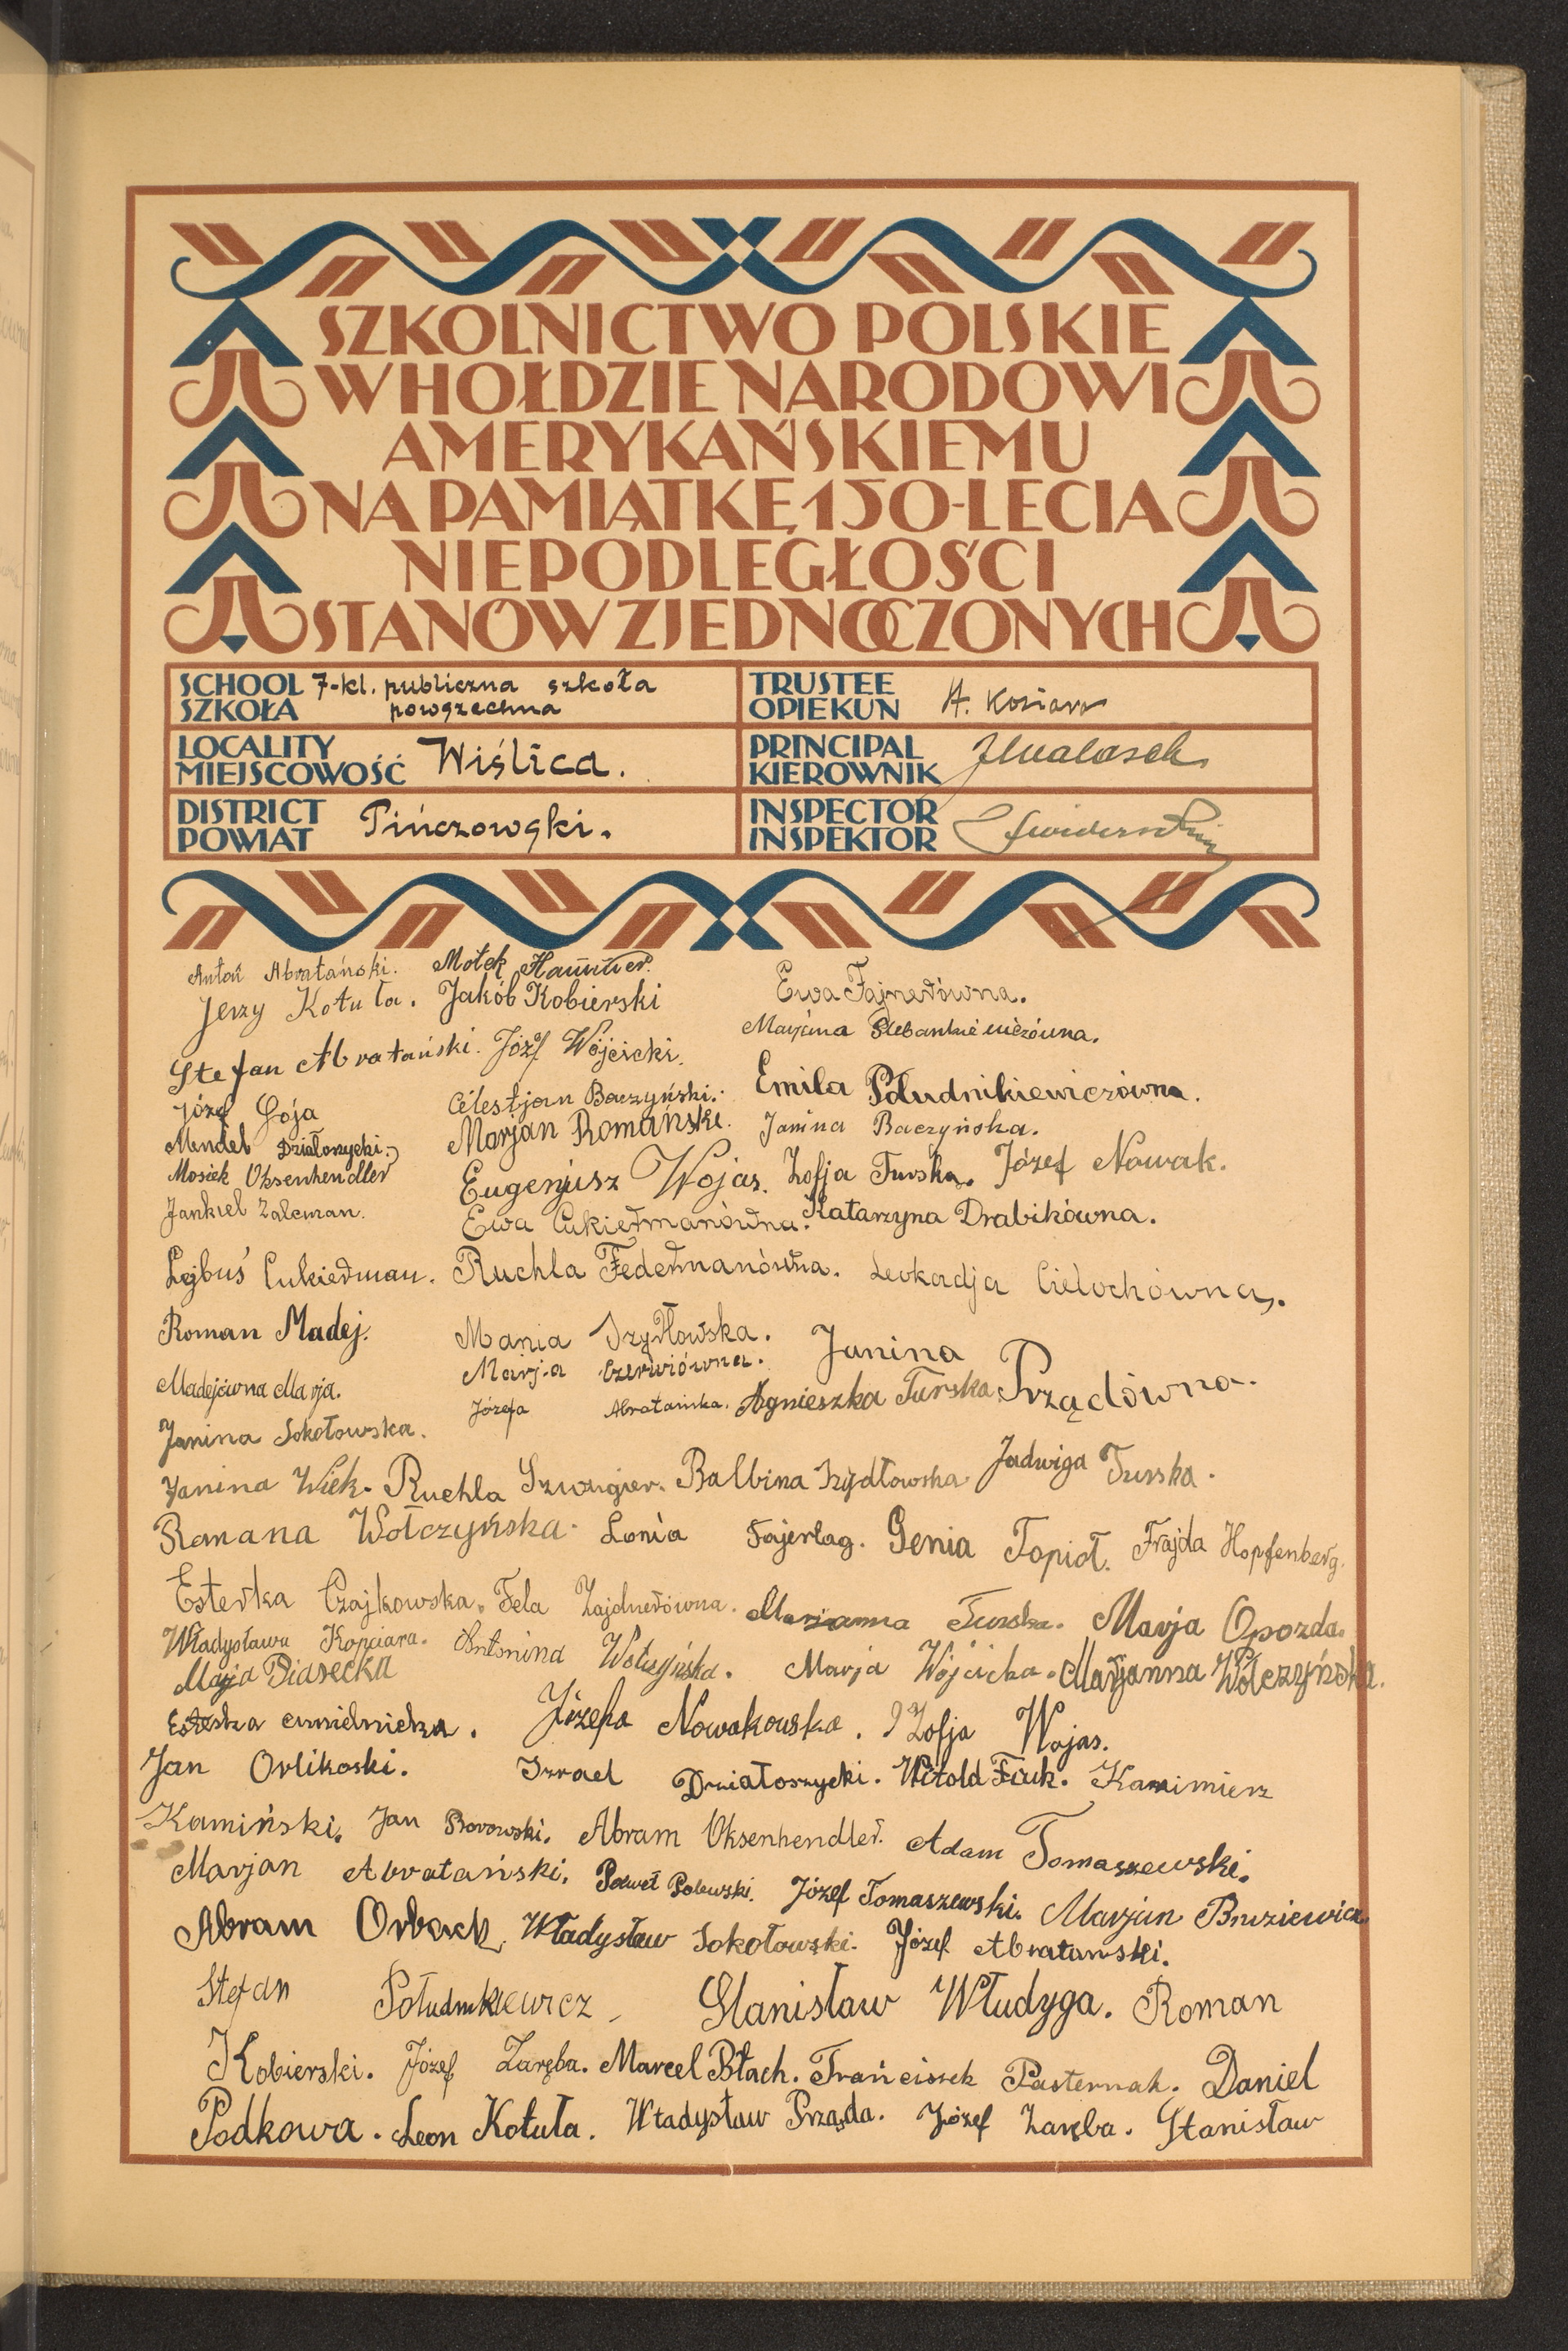 SZKOLNICTWO POLSKIE
W HOŁDZIE NARODOWI
AMERYKAŃSKIEMU
NA PAMIĄTKĘ 150-LECIA
NIEPODLEGŁOŚCI
STANÓW ZJEDNOCZONYCH
SCHOOL 7-kl. publiczna szkoła
SZKOŁA powszechna
TRUSTEE
OPIEKUN A. Koziara
LOCALITY
MIEJSCOWOŚĆ Wiślica.
PRINCIPAL
KIEROWNIK
DISTRICT
POWIAT Pińczowski.
INSPECTOR
INSPEKTOR
Antoń Abratański. Motek Hammer.
Jerzy Kotuła. Jakób Kobierski Ewa Fajnerówna.
Marjana
Stefan Abratański. Józf Wójcicki.
Józef Goja Celestjan Baczyński. Emila Południkiewiczówna.
Mendel Działoszycki. Marjan Romański. Janina Baczyńska.
Mosiek Oksenhendler Eugenjusz Wojas. Zofja Turska. Józef Nowak.
Jankiel Zalcman. Ewa Cukiermanówna. Katarzyna Drabikówna.
Lejbuś Cukierman. Ruchla Federmanówna. Leokadja Cielochówna.
Roman Madej. Mania Szydłowska. Janina
Madejówna Marja. Marja Czerwiówna. Prządówna.
Janina Sokołowska. Józefa Abratańska. Agnieszka Turska
Janina Wick. Ruchla Szwugier. Balbina Szydłowska Jadwiga Turska.
Romana Wołczyńska. Lonia Fajerlag. Genia Topioł. Frajda Hopfenberg.
Esterka Czajkowska. Fela Zajdnerówna. Marianna Turska. Marja Opozda.
Władysława Kopciara. Antonina Wołczyńska. Marja Wójcicka. Marjanna Wołczyńska.
Marja Piasecka
Esterka Chmielnicka. Józefa Nowakowska. Zofja Wojas.
Jan Orlikoski. Izrael Działoszycki. Witold Fiuk. Kazimierz
Kamiński. Jan Borowski. Abram Oksenhendler. Adam Tomaszewski.
Marjan Abratański. Paweł Polewski. Józef Tomaszewski. Marjan Bruziewicz.
Abram Orbach. Władysław Sokołowski. Józef Abratański.
Stefan Południkiewicz. Stanisław Władyga. Roman
Kobierski. Józef Zaręba. Marcel Błach. Frańciszek Pasternak. Daniel
Podkowa. Leon Kotuła. Władysław Prząda. Józef Zaręba. Stanisław